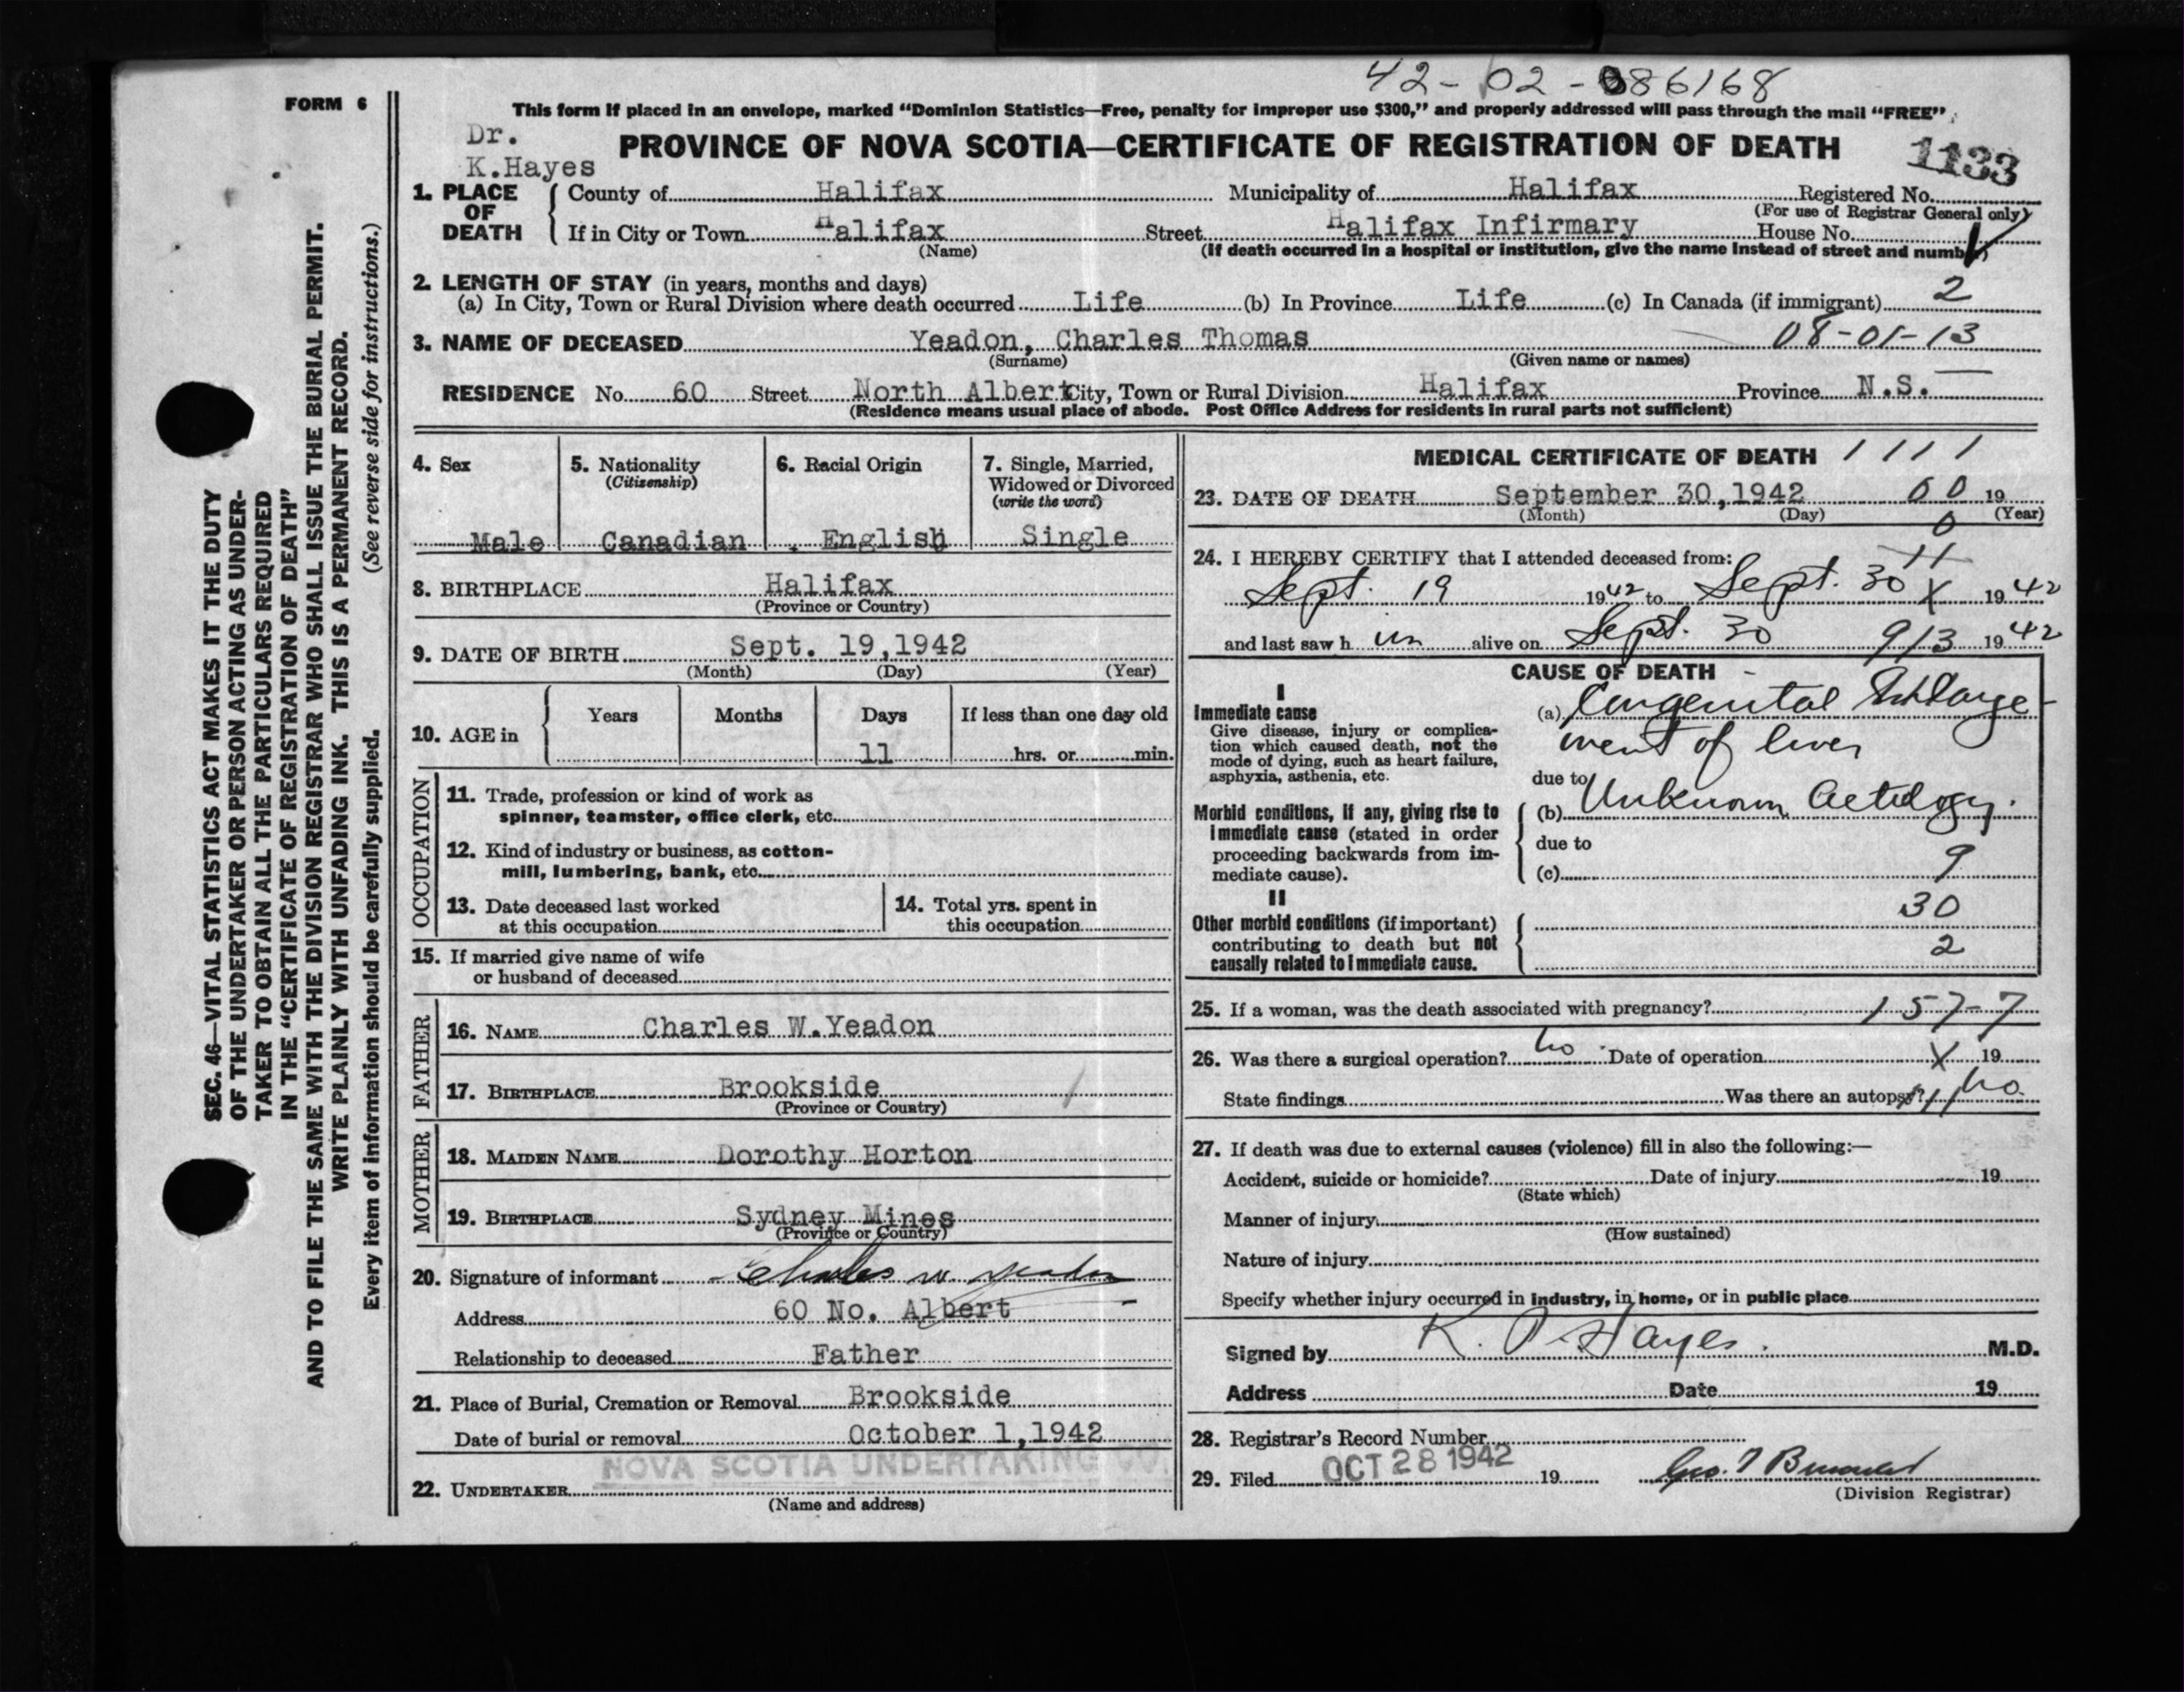 42-02-086168
FORM 6
This form if placed in an envelope, marked "Dominion Statistics—Free, penalty for improper use $300," and properly addressed will pass through the mail "FREE"
Dr.
K.Hayes
PROVINCE OF NOVA SCOTIA—CERTIFICATE OF REGISTRATION OF DEATH
1133
1. PLACE OF DEATH
County of Halifax Municipality of Halifax Registered No.
(For use of Registrar General only)
If in City or Town Halifax Street Halifax Infirmary House No.
(Name) (If death occurred in a hospital or institution, give the name instead of street and number)
2. LENGTH OF STAY (in years, months and days)
(a) In City, Town or Rural Division where death occurred Life (b) In Province Life (c) In Canada (if immigrant) 2
3. NAME OF DECEASED Yeadon, Charles Thomas 08-01-13
(Surname) (Given name or names)
RESIDENCE No. 60 Street North Albert City, Town or Rural Division Halifax Province N.S.
(Residence means usual place of abode. Post Office Address for residents in rural parts not sufficient)
4. Sex
Male
5. Nationality
(Citizenship)
Canadian
6. Racial Origin
English
7. Single, Married,
Widowed or Divorced
(write the word)
Single
8. BIRTHPLACE Halifax
(Province or Country)
9. DATE OF BIRTH Sept. 19,1942
(Month) (Day) (Year)
10. AGE in
Years Months Days If less than one day old
11 hrs. or min.
OCCUPATION
11. Trade, profession or kind of work as
spinner, teamster, office clerk, etc.
12. Kind of industry or business, as cotton-
mill, lumbering, bank, etc.
13. Date deceased last worked
at this occupation
14. Total yrs. spent in
this occupation
15. If married give name of wife
or husband of deceased
FATHER
16. NAME Charles W.Yeadon
17. BIRTHPLACE Brookside
(Province or Country)
MOTHER
18. MAIDEN NAME Dorothy Horton
19. BIRTHPLACE Sydney Mines
(Province or Country)
20. Signature of informant Charles W Yeadon
Address 60 No. Albert
Relationship to deceased Father
21. Place of Burial, Cremation or Removal Brookside
Date of burial or removal October 1,1942
NOVA SCOTIA UNDERTAKING CO.
22. UNDERTAKER
(Name and address)
MEDICAL CERTIFICATE OF DEATH 1111
23. DATE OF DEATH September 30,1942 00 19
(Month) (Day) (Year)
0
24. I HEREBY CERTIFY that I attended deceased from: 11
Sept. 19 1942 to Sept. 30 X 1942
and last saw h im alive on Sept. 30 9/3 1942
CAUSE OF DEATH
I
Immediate cause
Give disease, injury or complica-
tion which caused death, not the
mode of dying, such as heart failure,
asphyxia, asthenia, etc.
(a) Congenital Enlarge-
ment of liver
due to
Morbid conditions, if any, giving rise to
immediate cause (stated in order
proceeding backwards from im-
mediate cause).
(b) Unknown Aetiology.
due to
(c) 9
II
Other morbid conditions (if important)
contributing to death but not
causally related to immediate cause.
30
2
25. If a woman, was the death associated with pregnancy? 157-7
26. Was there a surgical operation? no Date of operation X 19
State findings Was there an autopsy? no
27. If death was due to external causes (violence) fill in also the following:—
Accident, suicide or homicide? Date of injury 19
(State which)
Manner of injury
(How sustained)
Nature of injury
Specify whether injury occurred in industry, in home, or in public place
Signed by K. P. Hayes. M.D.
Address Date 19
28. Registrar's Record Number
29. Filed OCT 28 1942 19
(Division Registrar)
SEC. 46—VITAL STATISTICS ACT MAKES IT THE DUTY
OF THE UNDERTAKER OR PERSON ACTING AS UNDER-
TAKER TO OBTAIN ALL THE PARTICULARS REQUIRED
IN THE "CERTIFICATE OF REGISTRATION OF DEATH"
AND TO FILE THE SAME WITH THE DIVISION REGISTRAR WHO SHALL ISSUE THE BURIAL PERMIT.
WRITE PLAINLY WITH UNFADING INK. THIS IS A PERMANENT RECORD.
Every item of information should be carefully supplied. (See reverse side for instructions.)